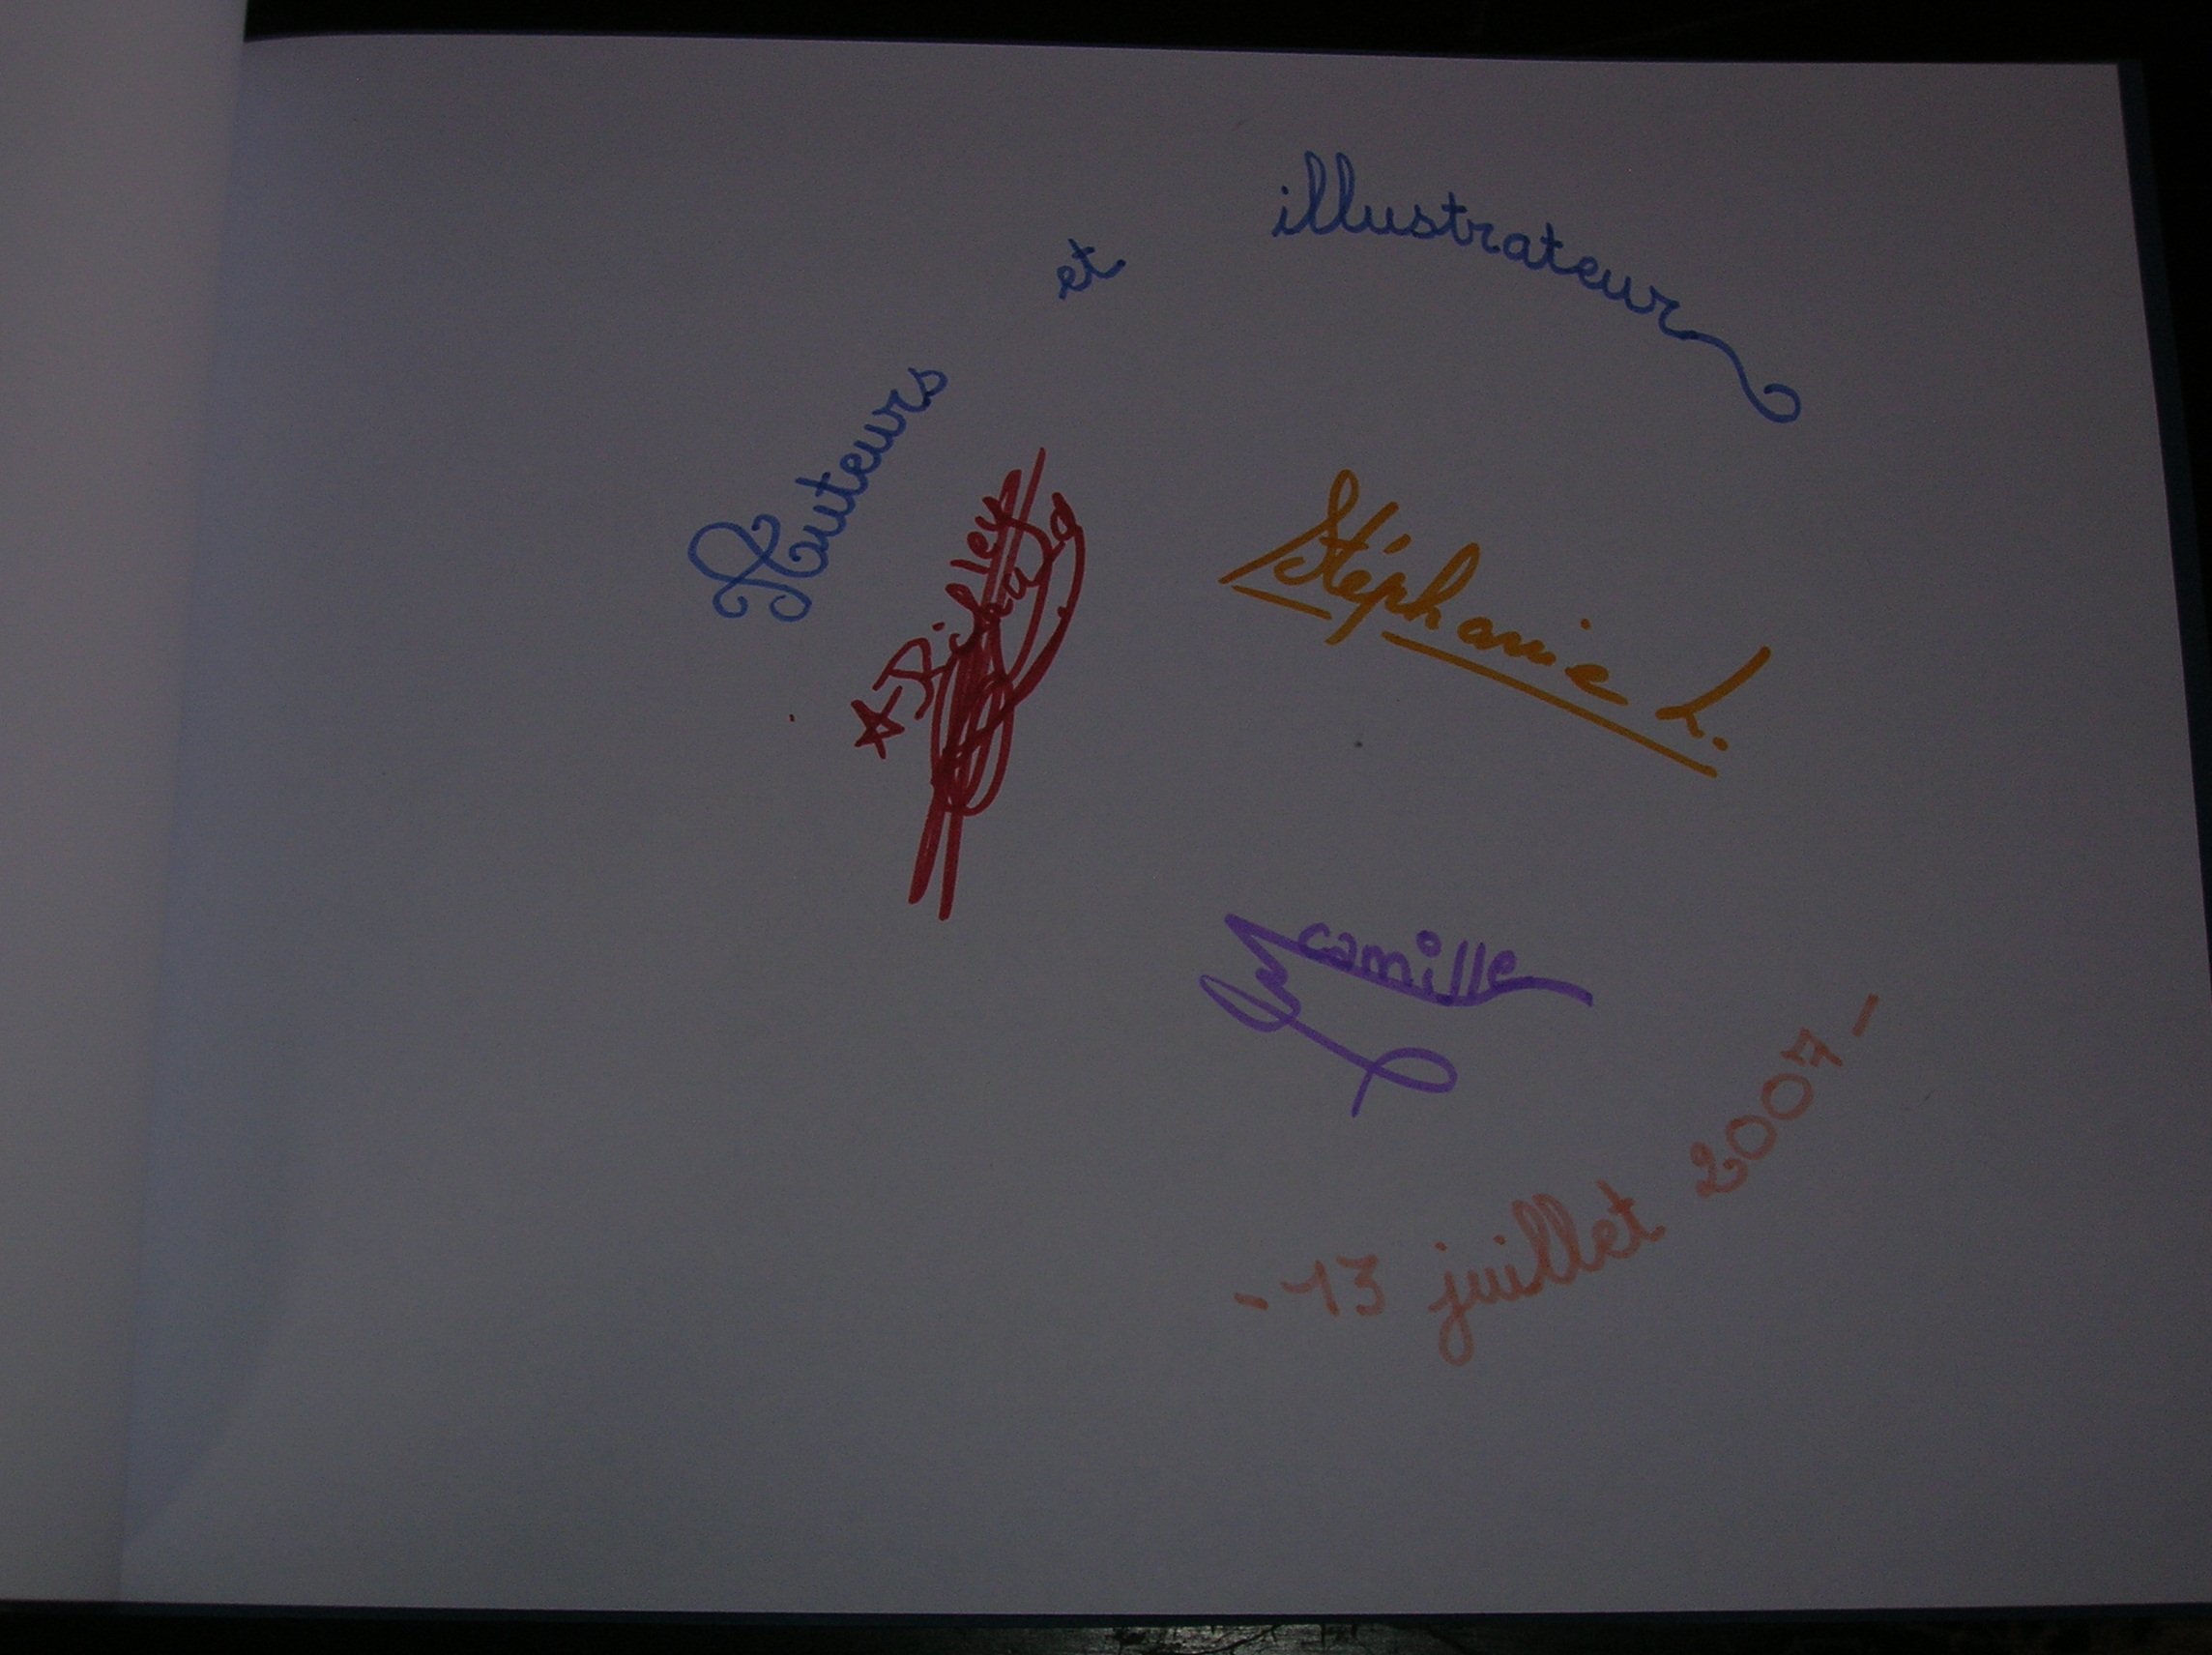 Auteurs et illustrateur
Richard
Stéphanie L.
camille
- 13 juillet 2007 -